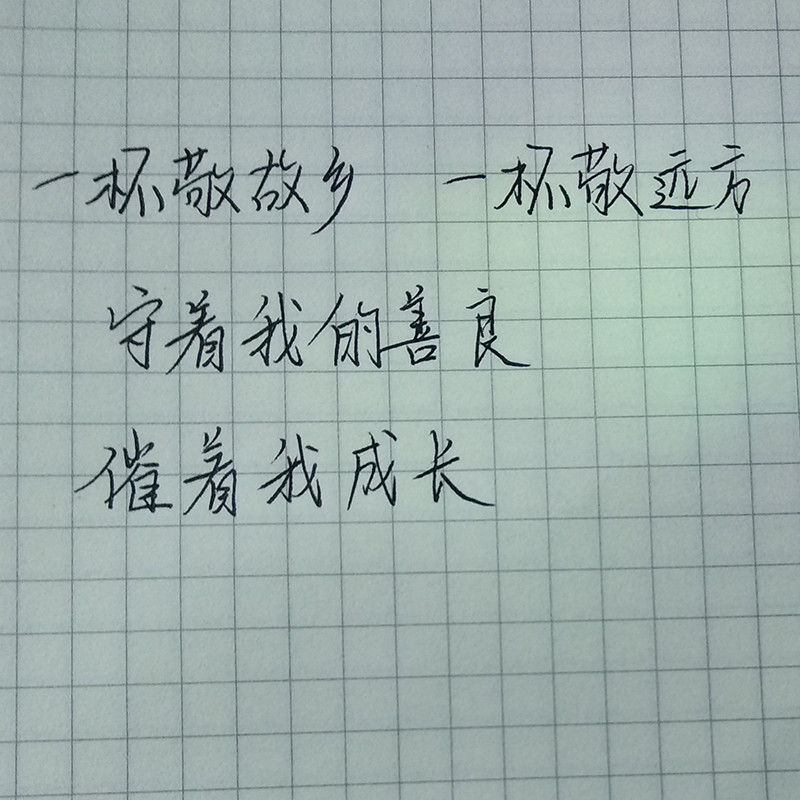 一杯敬故乡 一杯敬远方
守着我的善良
催着我成长